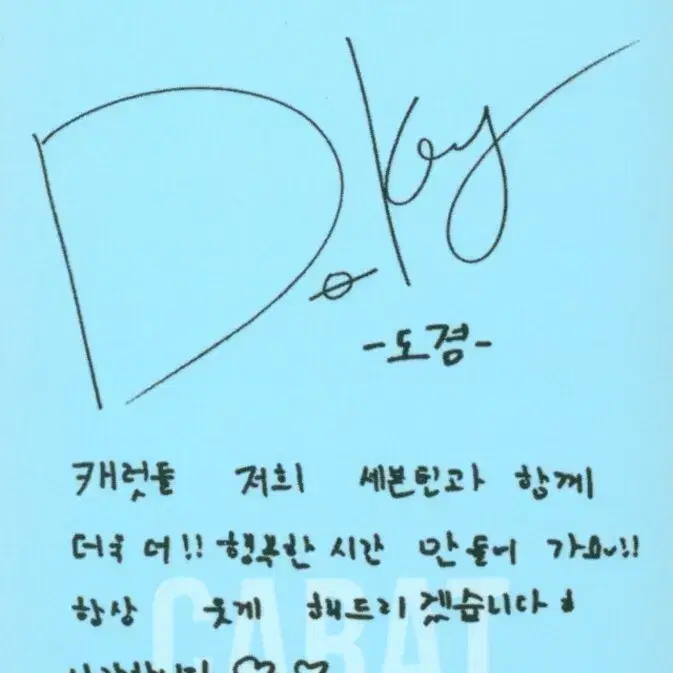 D.ky
-도겸-
캐럿들 저희 세븐틴과 함께
더욱 더!! 행복한 시간 만들어 가요~!!
항상 웃게 해드리겠습니다
CARAT